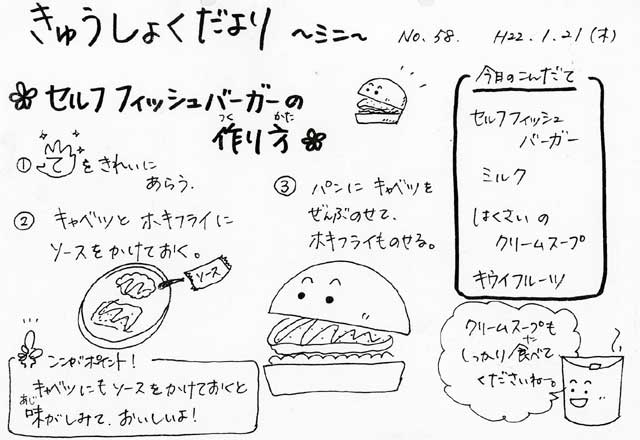 きゅうしょくだより 〜ミニ〜 No.58. H22.1.21(木)
セルフフィッシュバーガーの
作り方
つく かた
① てをきれいに
あらう.
② キャベツとホキフライに
ソースをかけておく。
ソース
③ パンにキャベツを
ぜんぶのせて、
ホキフライものせる。
ココがポイント!
キャベツにもソースをかけておくと
味がしみて、おいしいよ!
あじ
今日のこんだて
セルフフィッシュ
バーガー
ミルク
はくさいの
クリームスープ
キウイフルーツ
クリームスープも
しっかり食べて
た
くださいねー。